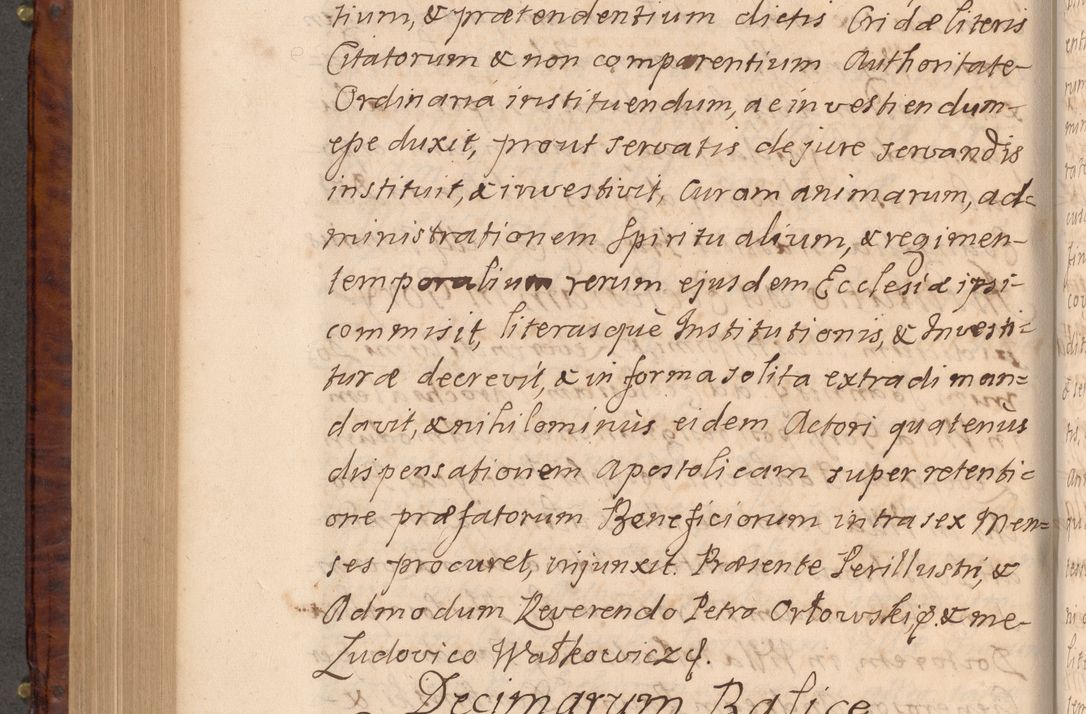 tium, & prætendentium dictis Cridæ literis
Citatorum & non comparentium Authoritate
Ordinaria instituendum, ac investiendum
esse duxit, prout servatis de jure servandis
instituit, & investivit, Curam animarum, ad=
ministrationem Spiritualium, & regimen
temporalium rerum ejusdem Ecclesiæ ipsi
commisit, literasquè Institutionis, & Investi=
turæ decrevit, & in forma solita extradi man=
davit, & nihilominùs eidem Actori quatenus
dispensationem Apostolicam super retenti=
one præfatorum Beneficiorum intra sex Men=
ses procuret, injunxit. Præsente Perillustri, &
Admodum Reverendo Petro Orłowski & me
Ludovico Wałkowicz
Decimarum Balice